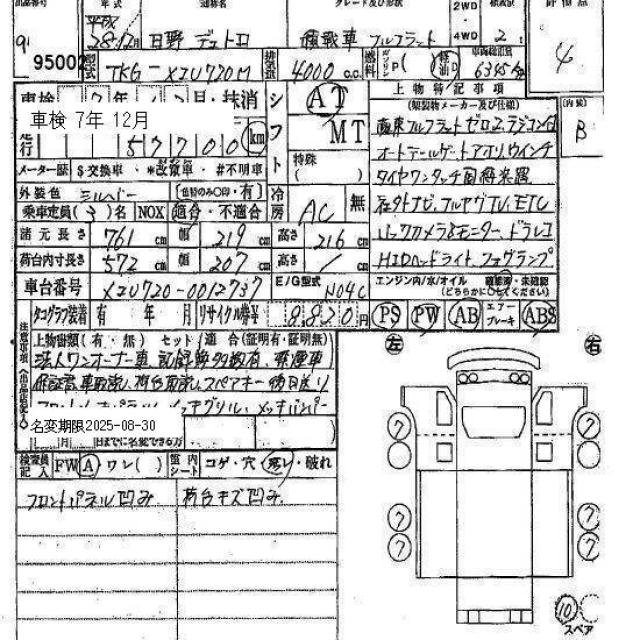 出品番号 年式 通称名 グレード及び形状 2WD 積載量 評価点
95002 平成 28・12月 日野 デュトロ 積載車 フルフラット 4WD 2t 4
型式 TKG-XZU720M 排気量 4000 c.c. 燃料 ガソリン(P) 軽油(D) 車両総重量 6345 kg
車検 7年 12月
走行 57700 km
シフト AT MT 特殊( )
メーター歴 $・交換車 ・ *改竄車 ・ #不明車
外装色 シルバー [色替のみ○印・有]
乗車定員(3)名 NOX 適合・不適合
冷房 AC 無
諸元長さ 761 cm 幅 219 cm 高さ 216 cm
荷台内寸長さ 572 cm 幅 207 cm 高さ / cm
車台番号 XZU720-0012737 E/G型式 N04C
タコグラフ装着 有 年 月 リサイクル券¥ 8,820 円
上物特記事項
(架装物メーカー及び仕様)
[内装] B
極東フルフラットゼロⅡ ラジコン付
タイヤワンタッチ固縛装置
社外ナビ、フルセグTV、ETC
バックカメラ&モニター、ドラレコ
HIDヘッドライト、フォグランプ
エンジン内/水/オイル 確認済・未確認
(どちらかに○してください)
PS PW AB エアーブレーキ ABS
注意事項(出品店申告)
上物書類(有・無) セット(適合(証明有・証明無)
法人ワンオーナー車、記録簿多数有、禁煙車
名変期限2025-08-30
月 日までに名変できぬ方
検査員記入 FW A ワレ( ) 室内シート コゲ・穴・汚レ・破れ
フロントパネル凹み 荷台キズ凹み
左 右
7 7
7 7
7 7
10
スペア